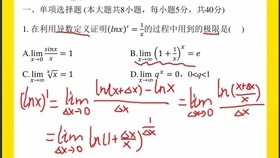 一、单项选择题 (本大题共8小题，每小题5分，共40分)
1. 在利用导数定义证明(lnx)' = 1/x的过程中用到的极限是( )
A. lim x→0 sinx/x = 1 B. lim x→∞ (1 + 1/x)^x = e
C. lim x→∞ ˣ√x = 1 D. lim x→∞ q^x = 0, 0<q<1
(lnx)' = lim Δx→0 ln(x+Δx) - lnx / Δx = lim Δx→0 ln(x+Δx / x) / Δx
= lim Δx→0 ln(1 + Δx/x)^(1/Δx)